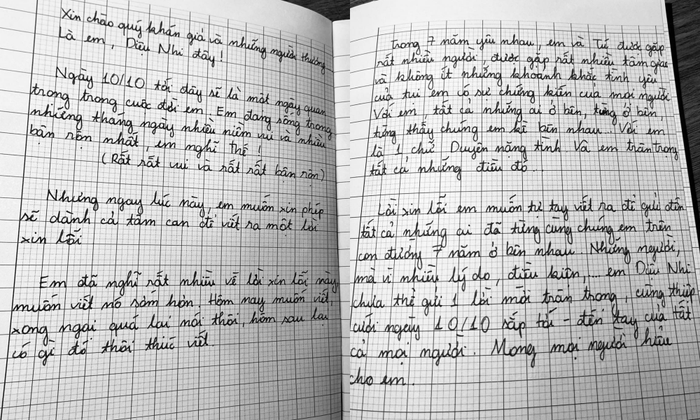 Xin chào quý khán giả và những người thương
Là em, Diệu Nhi đây!
Ngày 10/10 tới đây sẽ là một ngày quan
trọng trong cuộc đời em. Em đang sống trong
những tháng ngày nhiều niềm vui và nhiều
bận rộn nhất, em nghĩ thế!
(Rất rất vui và rất rất bận rộn)
Nhưng ngay lúc này, em muốn xin phép
sẽ dành cả tâm can để viết ra một lời
xin lỗi
Em đã nghĩ rất nhiều về lời xin lỗi này
muốn viết nó sớm hơn. Hôm nay muốn viết,
xong ngại quá lại nói thôi, hôm sau lại
có gì đó thôi thúc viết.
Trong 7 năm yêu nhau, em và Tú được gặp
rất nhiều người được gặp rất nhiều tâm giao
và không ít những khoảnh khắc tình yêu
của tụi em có sự chứng kiến của mọi người
Với em tất cả những ai ở bên, từng ở bên,
từng thấy chúng em kề bên nhau. Với em
là 1 chữ Duyên nặng tình Và em trân trọng
tất cả những điều đó...
Lời xin lỗi em muốn tự tay viết ra để gửi đến
tất cả những ai đã từng cùng chúng em trên
con đường 7 năm ở bên nhau. Những người,
mà vì nhiều lý do, điều kiện.... em Diệu Nhi
chưa thể gửi 1 lời mời trân trọng, cùng thiệp
cưới ngày 10/10 sắp tới - đến tay của tất
cả mọi người. Mong mọi người hiểu
cho em.